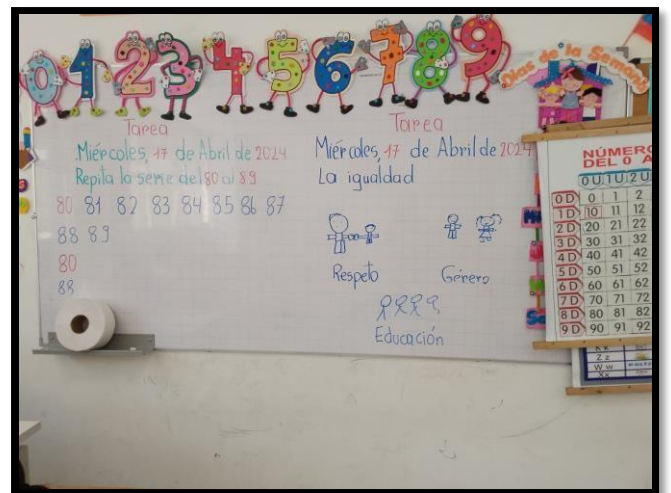 0 1 2 3 4 5 6 7 8 9
Días de la Semana
Tarea
Miércoles, 17 de Abril de 2024
Repita la serie del 80 al 89
80 81 82 83 84 85 86 87
88 89
80
88
Tarea
Miércoles, 17 de Abril de 2024
La igualdad
Respeto Género
Educación
NÚMERO
DEL 0 A
0U 1U 2U
0D 0 1 2
1D 10 11 12
2D 20 21 22
3D 30 31 32
4D 40 41 42
5D 50 51 52
6D 60 61 62
7D 70 71 72
8D 80 81 82
9D 90 91 92
Z z
W w
X x